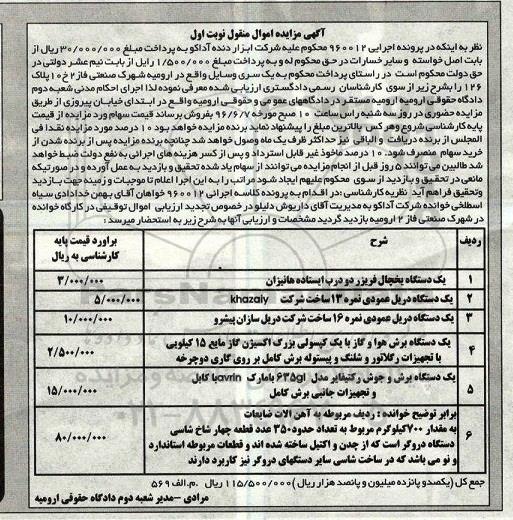 آگهی مزایده اموال منقول نوبت اول
نظر به اینکه در پرونده اجرایی ۹۶۰۰۱۲ محکوم علیه شرکت ابزار دنده آداکو به پرداخت مبلغ ۳۰/۰۰۰/۰۰۰ ریال از
بابت اصل خواسته و سایر خسارات در حق محکوم له و به پرداخت مبلغ ۱/۵۰۰/۰۰۰ رایل از بابت نیم عشر دولتی در
حق دولت محکوم است در راستای پرداخت محکوم به یک سری وسایل واقع در ارومیه شهرک صنعتی فاز ۲ خ ۱۰ پلاک
۱۲۶ را بشرح زیر از سوی کارشناسان رسمی دادگستری ارزیابی شده معرفی نموده لذا اجرای احکام مدنی شعبه دوم
دادگاه حقوقی ارومیه ارومیه مستقر در دادگاههای عمومی و حقوقی ارومیه واقع در ابتدای خیابان پیروزی از طریق
مزایده حضوری در روز سه شنبه راس ساعت ۱۰ صبح مورخه ۹۶/۶/۷ بفروش برساند قیمت سهام ورد مزایده از قیمت
پایه کارشناسی شروع و هر کس بالاترین مبلغ را پیشنهاد نماید برنده مزایده خواهد بود ۱۰ درصد مورد مزایده نقدا فی
المجلس از برنده دریافت و الباقی نیز حداکثر ظرف یک ماه وصول خواهد شد چنانچه برنده مزایده پس از برنده شدن از
خرید سهام منصرف شود ۱۰ درصد ماخوذ غیر قابل استرداد و پس از کسر هزینه های اجرائی به نفع دولت ضبط خواهد
شد طالبین می توانند ۵ روز قبل از انجام مزایده می توانند از سهام یاد شده تحقیق و بازدید به عمل آورده و در صورتیکه
مانعی در تحقیق و بازدید از سوی محکوم علیهم ایجاد شود مراتب را به این اجرا اعلام تا موجبات و زمینه جهت بازدید
وتحقیق فراهم آید نظریه کارشناسی: در اقدام به پرونده کلاسه اجرائی ۹۶۰۰۱۲ خواهان آقای بهمن خدادای سیاه
اسطلخی خوانده شرکت آداکو به مدیریت آقای داریوش دلیلو در خصوص تجدید ارزیابی اموال توقیفی در کارگاه خوانده
در شهرک صنعتی فاز ۲ ارومیه بازدید گردید مشخصات و ارزیابی آنها به شرح زیر به استحضار میرسد:
ردیف شرح براورد قیمت پایه کارشناسی به ریال
۱ یک دستگاه یخچال فریزر دو درب ایستاده هانیزان ۳/۰۰۰/۰۰۰
۲ یک دستگاه دریل عمودی نمره ۱۳ ساخت شرکت khazaiy ۵/۰۰۰/۰۰۰
۳ یک دستگاه دریل عمودی نمره ۱۶ ساخت شرکت دریل سازان پیشرو ۱۰/۰۰۰/۰۰۰
۴ یک دستگاه برش هوا و گاز با یک کپسولی بزرگ اکسیژن گاز مایع ۱۵ کیلویی
با تجهیزات رگلاتور و شلنگ و پیستوله برش کامل بر روی گاری دوچرخه ۲/۵۰۰/۰۰۰
۵ یک دستگاه برش و جوش رکتیفایر مدل ۶۳۵gl بامارک gavrin کابل
و تجهیزات جانبی برش کامل ۱۵/۰۰۰/۰۰۰
۶ برابر توضیح خوانده : ردیف مربوطه به آهن الات ضایعات
به مقدار ۷۰۰کیلوگرم مربوط به تعداد حدود۳۵۰ عدد قطعه چهار شاخ شاسی
دستگاه دروگر است که از چدن و اکتیل ساخته شده اند و قطعات مربوطه استاندارد
و نو می باشد که در ساخت شاسی سایر دستگهای دروگر نیز کاربرد دارند ۸۰/۰۰۰/۰۰۰
جمع کل (یکصدو پانزده میلیون و پانصد هزار ریال) ۱۱۵/۵۰۰/۰۰۰ ریال م.الف ۵۶۹
مرادی -مدیر شعبه دوم دادگاه حقوقی ارومیه